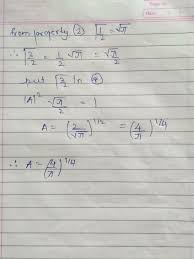 from property (2) √1/2 = √π
∴ √3/2 = 1/2 √π = √π/2
put √3/2 in ④
|A|² √π/2 = 1
A = (2/√π)^1/2 = (4/π)^1/4
∴ A = (4/π)^1/4